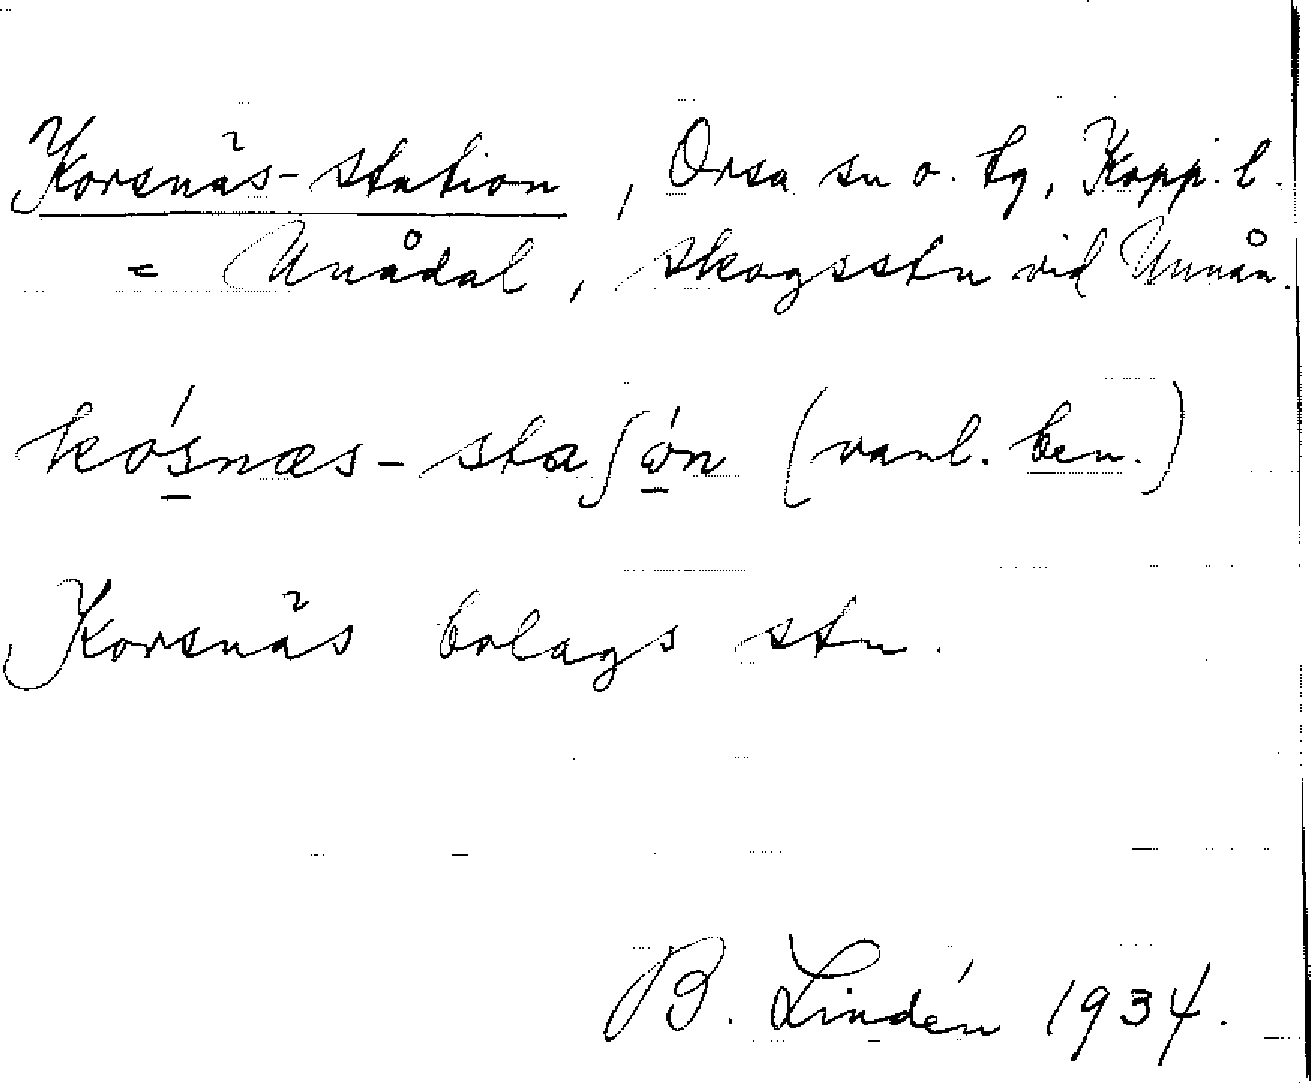 Korsnäs-station, Orsa sn o. tg, Kopp. l.
= Unådal, skogsstn vid Unnån.
kó̱snæs-staʃó̱n (vanl. ben.)
Korsnäs bolags stn.
B. Lindén 1934.